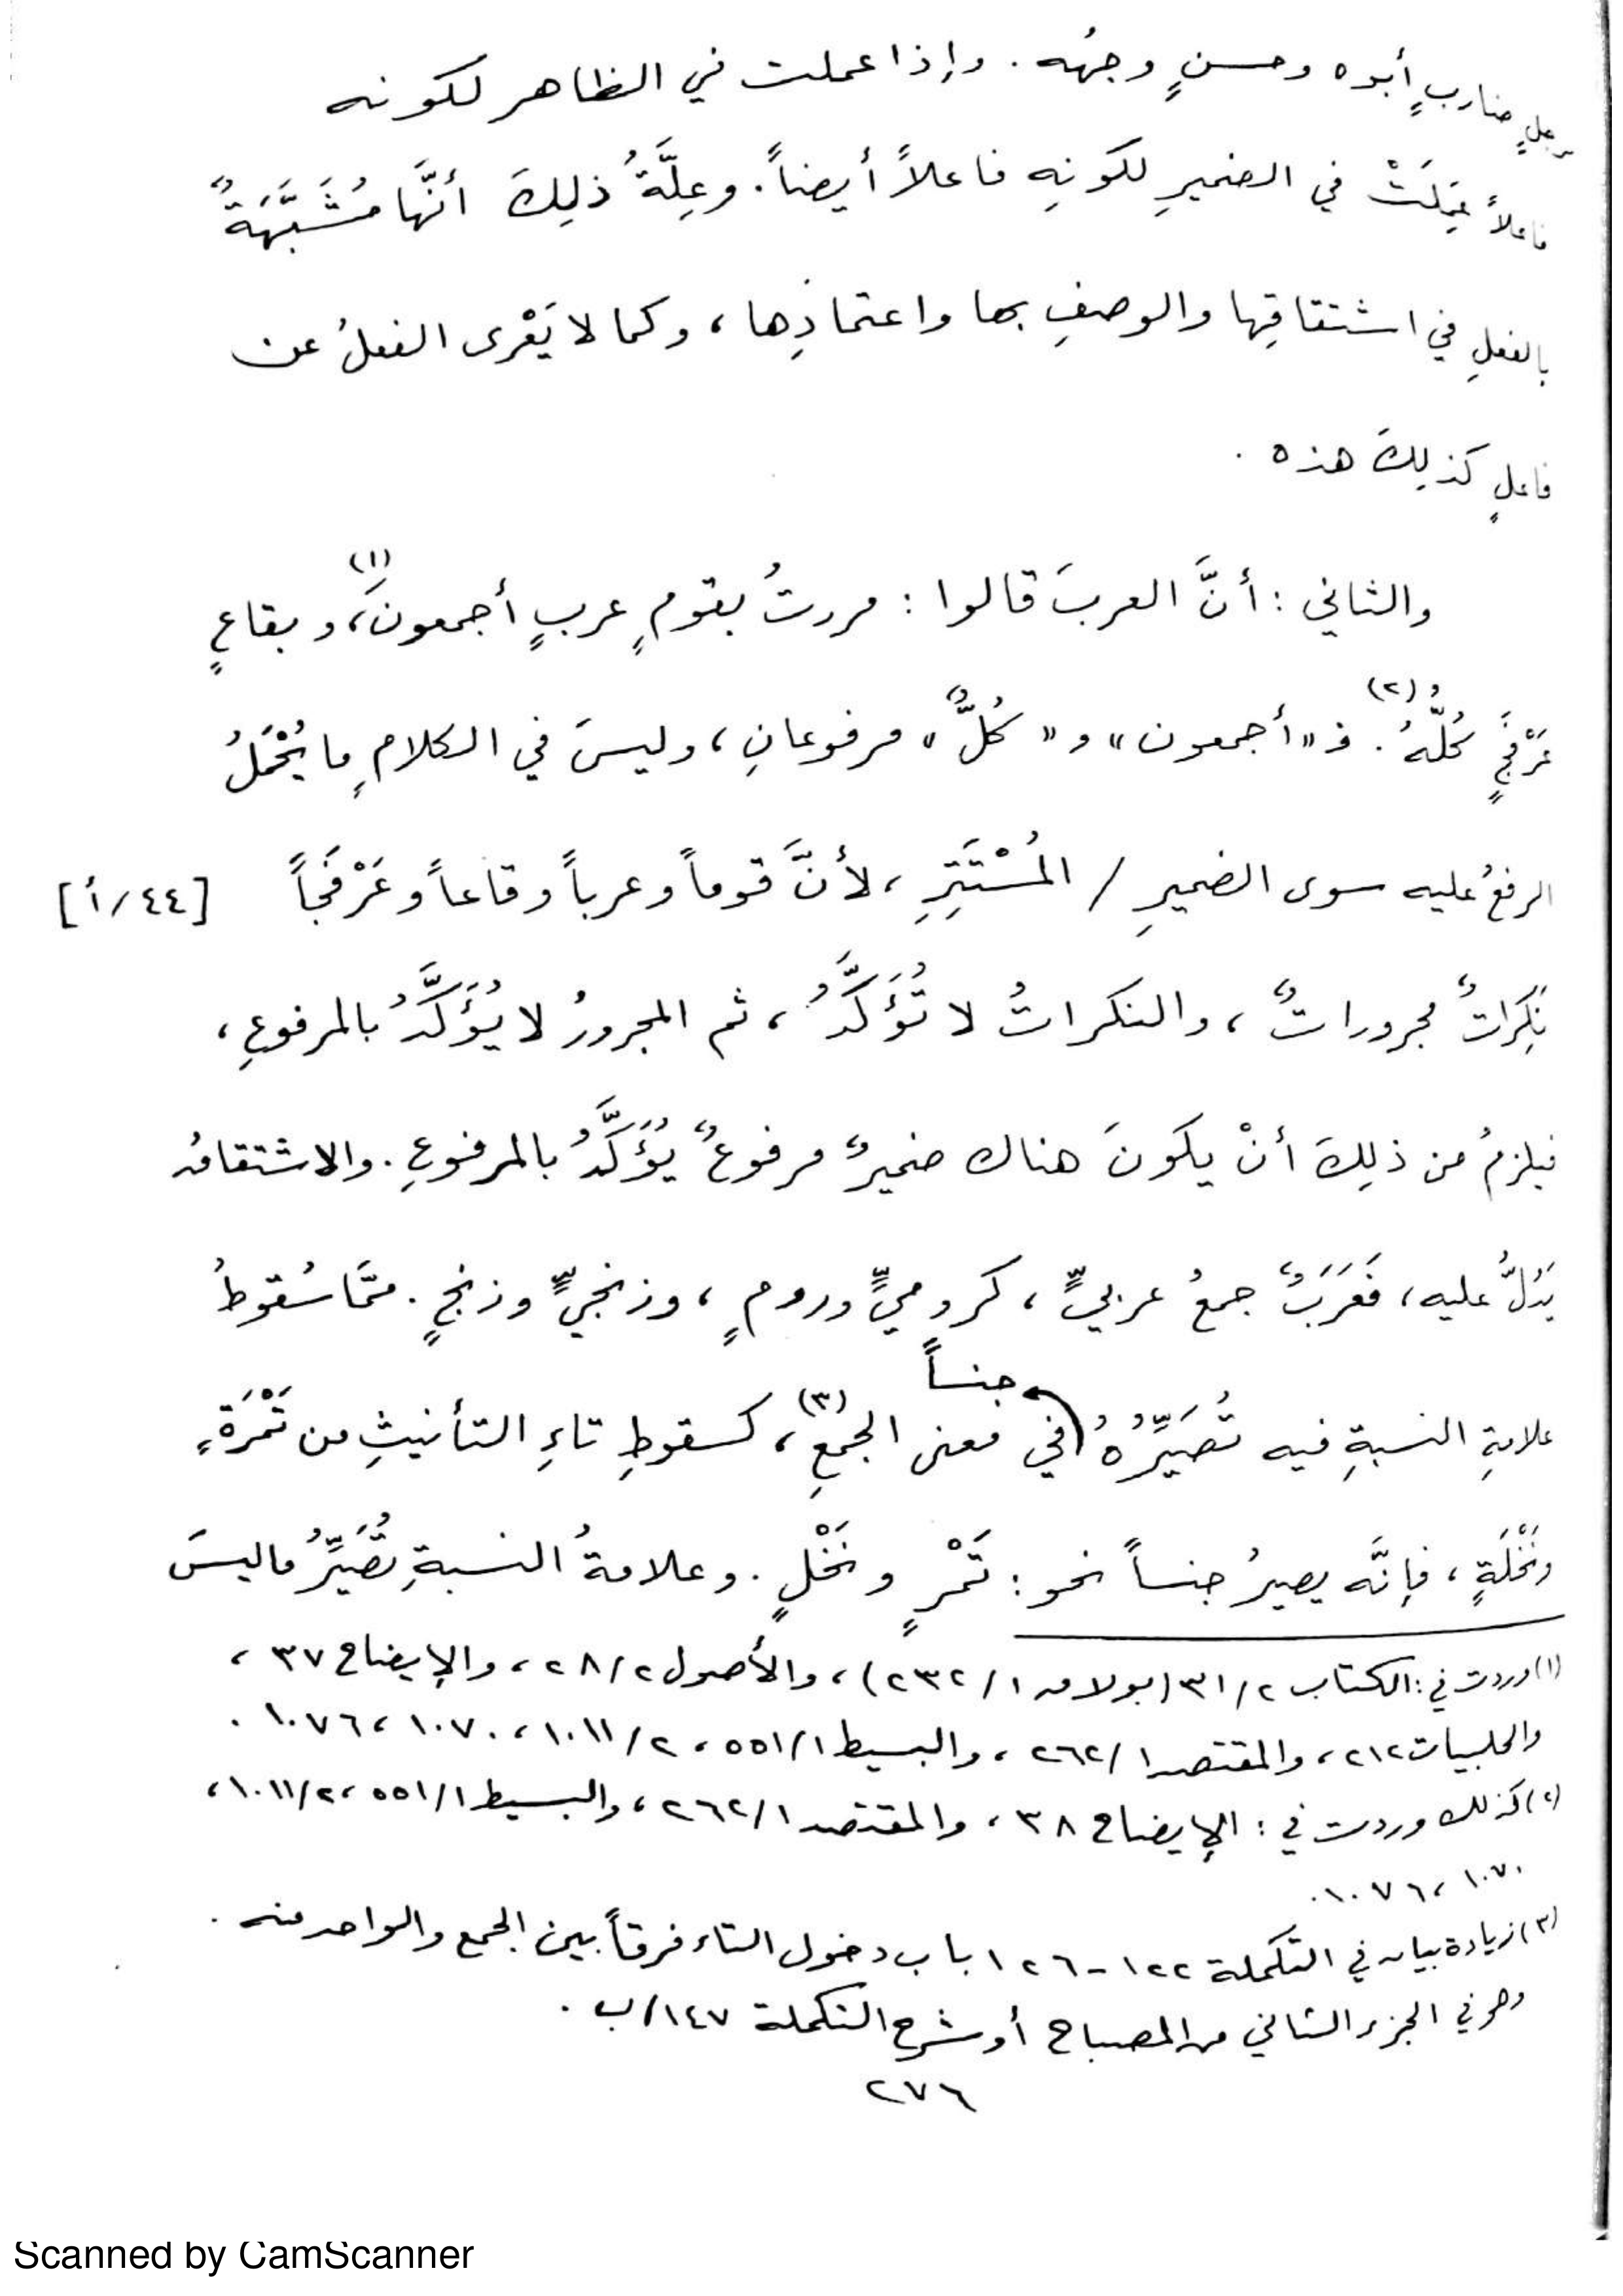 رجلٍ ضاربٍ أبوه وحسنٍ وجهُه . وإذا عملت في الظاهر لكونه
فاعلاً عَمِلَتْ في الضميرِ لكونِه فاعلاً أيضاً . وعِلَّةُ ذلِكَ أنَّها مُشَبَّهَةٌ
بالفعلِ في اشتقاقِها والوصفِ بها واعتمادِها ، وكما لا يَعْرى الفعلُ عن
فاعلٍ كذلِكَ هذه .
والثاني : أنَّ العربَ قالوا : مررتُ بقومٍ عربٍ أجمعونَ(١)، وبقاعٍ
عَرْفَجٍ كُلُّهُ(٢). فـ «أجمعون» و «كُلٌّ» مرفوعانِ ، وليسَ في الكلامِ ما يُحْمَلُ
الرفعُ عليه سوى الضميرِ / المُسْتَتِرِ ، لأنَّ قوماً وعرباً وقاعاً وعَرْفَجاً [٤٤/أ]
نَكِرَاتٌ مجروراتٌ ، والنكراتُ لا تُؤَكَّدُ ، ثم المجرورُ لا يُؤَكَّدُ بالمرفوعِ ،
فيلزمُ من ذلِكَ أنْ يكونَ هناك ضميرٌ مرفوعٌ يُؤَكَّدُ بالمرفوعِ . والاشتقاقُ
يَدُلُّ عليه ، فَعَرَبٌ جمعُ عربيٍّ ، كروميٍّ ورومٍ ، وزنجيٍّ وزنجٍ . متَّا سُقوطُ
جنساً
علامةِ النسبةِ فيه تُصَيِّرُهُ في معنى الجمعِ(٣)، كسقوطِ تاءِ التأنيثِ من تَمْرَةٍ
ونَخْلَةٍ ، فإنَّه يصيرُ جنساً نحو : تَمْرٍ ونَخْلٍ . وعلامةُ النسبةِ تُصَيِّرُ ما ليسَ
(١) وردت في : الكتاب ٣١/٢ (بولاق ٢٣٢/١) ، والأصول ٢٨/٢ ، والإيضاح ٣٧ ،
والحلبيات ٢١٢ ، والمقتصد ٢٦٢/١ ، والبسيط ٥٥١/١ ، ١٠١١/٢ ، ١٠٧٠ ، ١٠٧٦ .
(٢) كذلك وردت في : الإيضاح ٣٨ ، والمقتصد ٢٦٢/١ ، والبسيط ٥٥١/١ ، ١٠١١/٢ ،
١٠٧٠ ، ١٠٧٦ .
(٣) زيادة بيان في التكملة ١٢٢-١٢٦ باب دخول التاء فرقاً بين الجمع والواحد منه .
وهو في الجزء الثاني من المصباح أو شرح التكملة ١٤٧/ب .
٢٧٦
Scanned by CamScanner